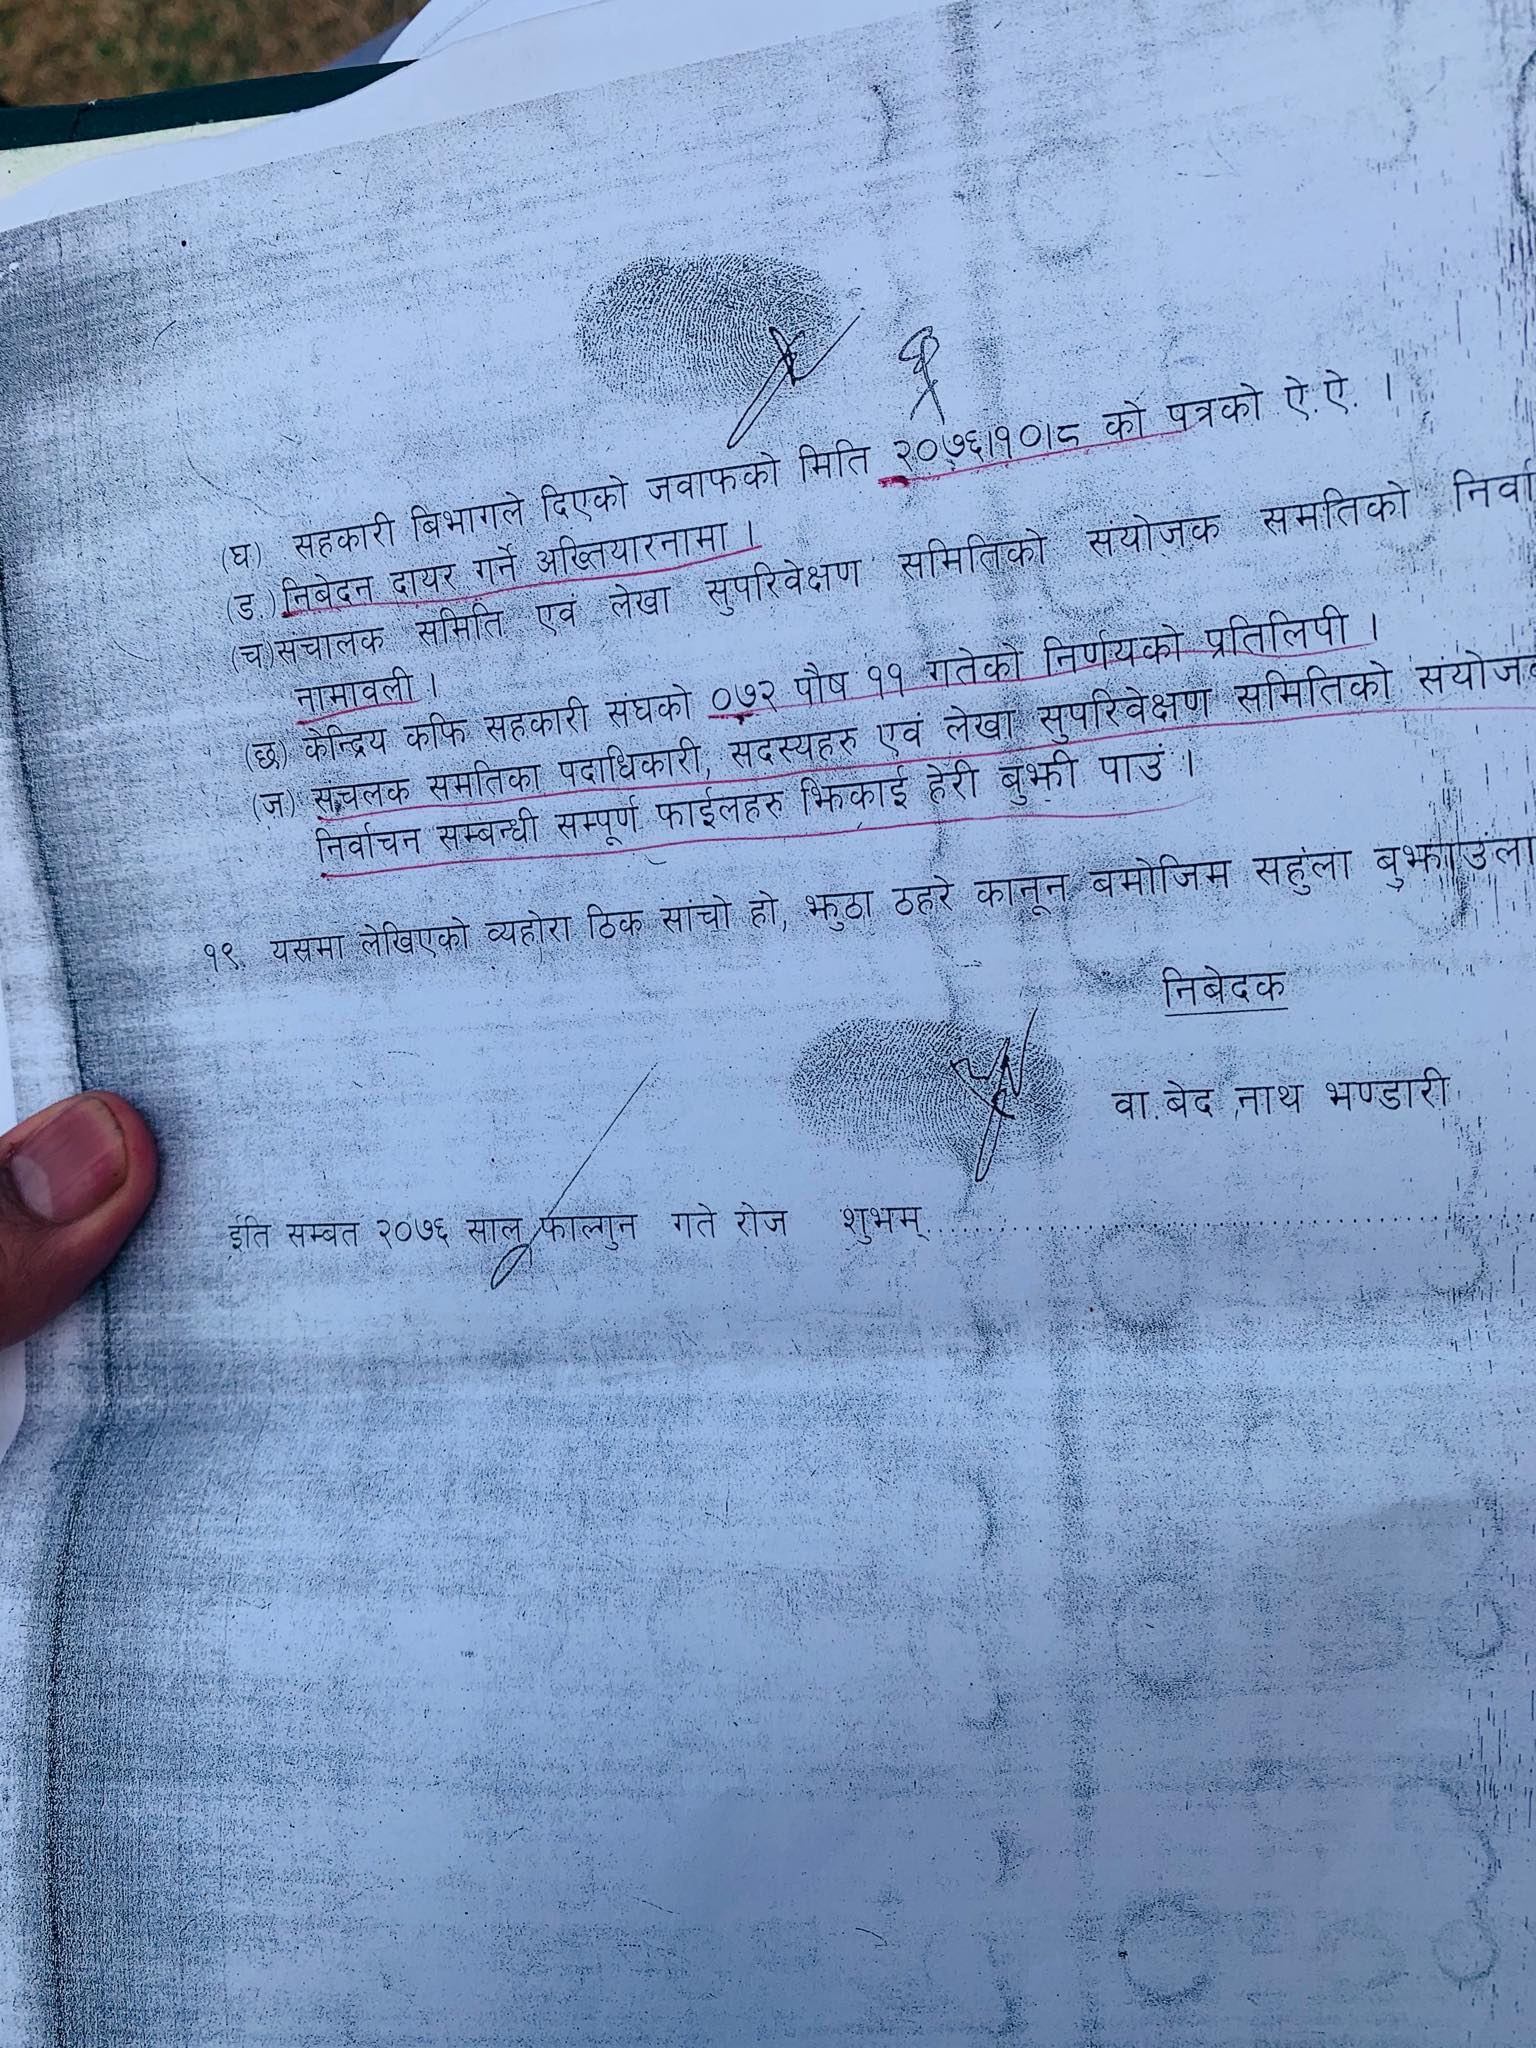 (घ) सहकारी बिभागले दिएको जवाफको मिति २०७६।१०।८ को पत्रको ऐ.ऐ. ।
(ड.) निबेदन दायर गर्ने अख्तियारनामा ।
(च) संचालक समिति एवं लेखा सुपरिवेक्षण समितिको संयोजक समतिको निर्वा
नामावली ।
(छ) केन्द्रिय कफि सहकारी संघको ०७२ पौष ११ गतेको निर्णयको प्रतिलिपी ।
(ज) संचलक समतिका पदाधिकारी, सदस्यहरु एवं लेखा सुपरिवेक्षण समितिको संयोजक
निर्वाचन सम्बन्धी सम्पूर्ण फाईलहरु झिकाई हेरी बुझी पाउं ।
१९. यसमा लेखिएको व्यहोरा ठिक सांचो हो, झुठा ठहरे कानून बमोजिम सहुंला बुझाउंला
निबेदक
वा.बेद नाथ भण्डारी
इति सम्बत २०७६ साल फाल्गुन गते रोज शुभम्.............................................